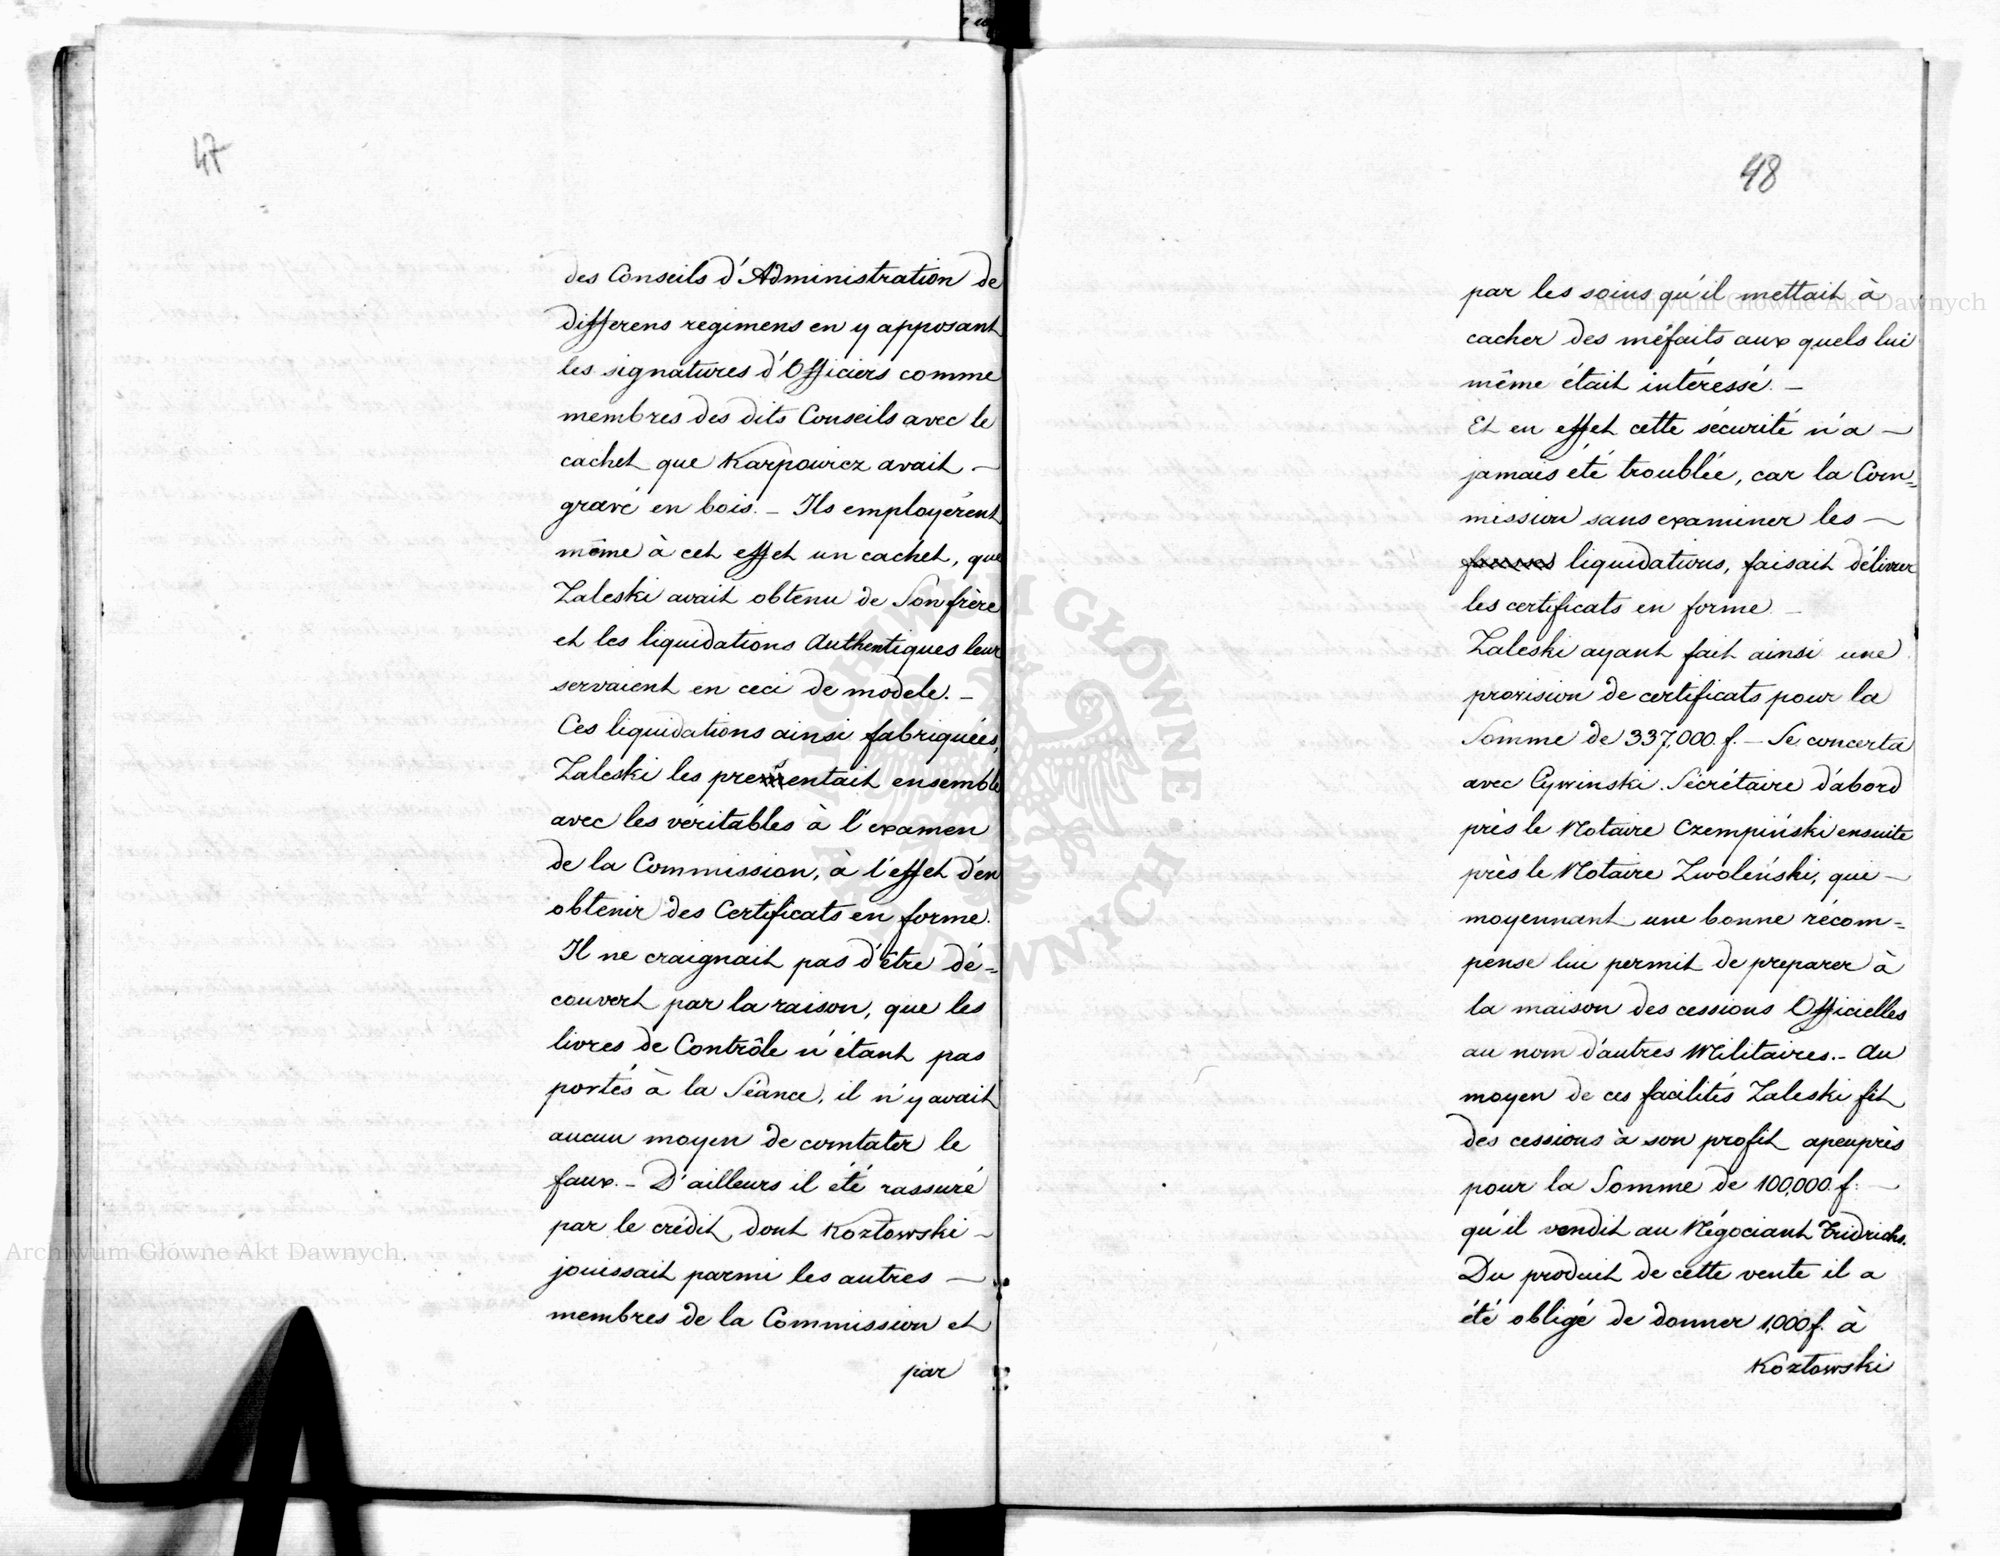 47
des Conseils d'Administration de
differens regimens en y apposant
les signatures d'Officiers comme
membres des dits Conseils avec le
cachet que Karpowicz avait —
gravé en bois. — Ils employèrent
même à cet effet un cachet, que
Zaleski avait obtenu de Son frère
et les liquidations Authentiques leur
servaient en ceci de modele. —
Ces liquidations ainsi fabriquées,
Zaleski les presentait ensemble
avec les véritables à l'examen
de la Commission, à l'effet d'en
obtenir des Certificats en forme.
Il ne craignait pas d'être dé=
couvert par la raison, que les
livres de Contrôle n'étant pas
portés à la Séance, il n'y avait
aucun moyen de comtater le
faux. — D'ailleurs il été rassuré
par le crédit, dont Kozłowski —
jouissait parmi les autres —
membres de la Commission et
par
48
par les soins qu'il mettait à
cacher des méfaits aux quels lui
même était intéressé. —
Et en effet cette sécurité n'a —
jamais été troublée, car la Com=
mission sans examiner les —
fausses liquidations, faisait délivrer
les certificats en forme —
Zaleski ayant fait ainsi une
provision de certificats pour la
Somme de 337,000 f. — Se concerta
avec Cywinski. Sécrétaire d'abord
près le Notaire Czempiński ensuite
près le Notaire Zwoleński, qui —
moyennant une bonne récom=
pense lui permit de preparer à
la maison des cessions Officielles
au nom d'autres Militaires. — Au
moyen de ces facilités Zaleski fit
des cessions à son profit apeuprès
pour la Somme de 100,000 f. —
qu'il vendit au Négociant Fridrichs.
Du produit de cette vente il a
été obligé de donner 1,000 f. à
Kozłowski
Archiwum Główne Akt Dawnych
Archiwum Główne Akt Dawnych
ARCHIWUM GŁÓWNE AKT DAWNYCH